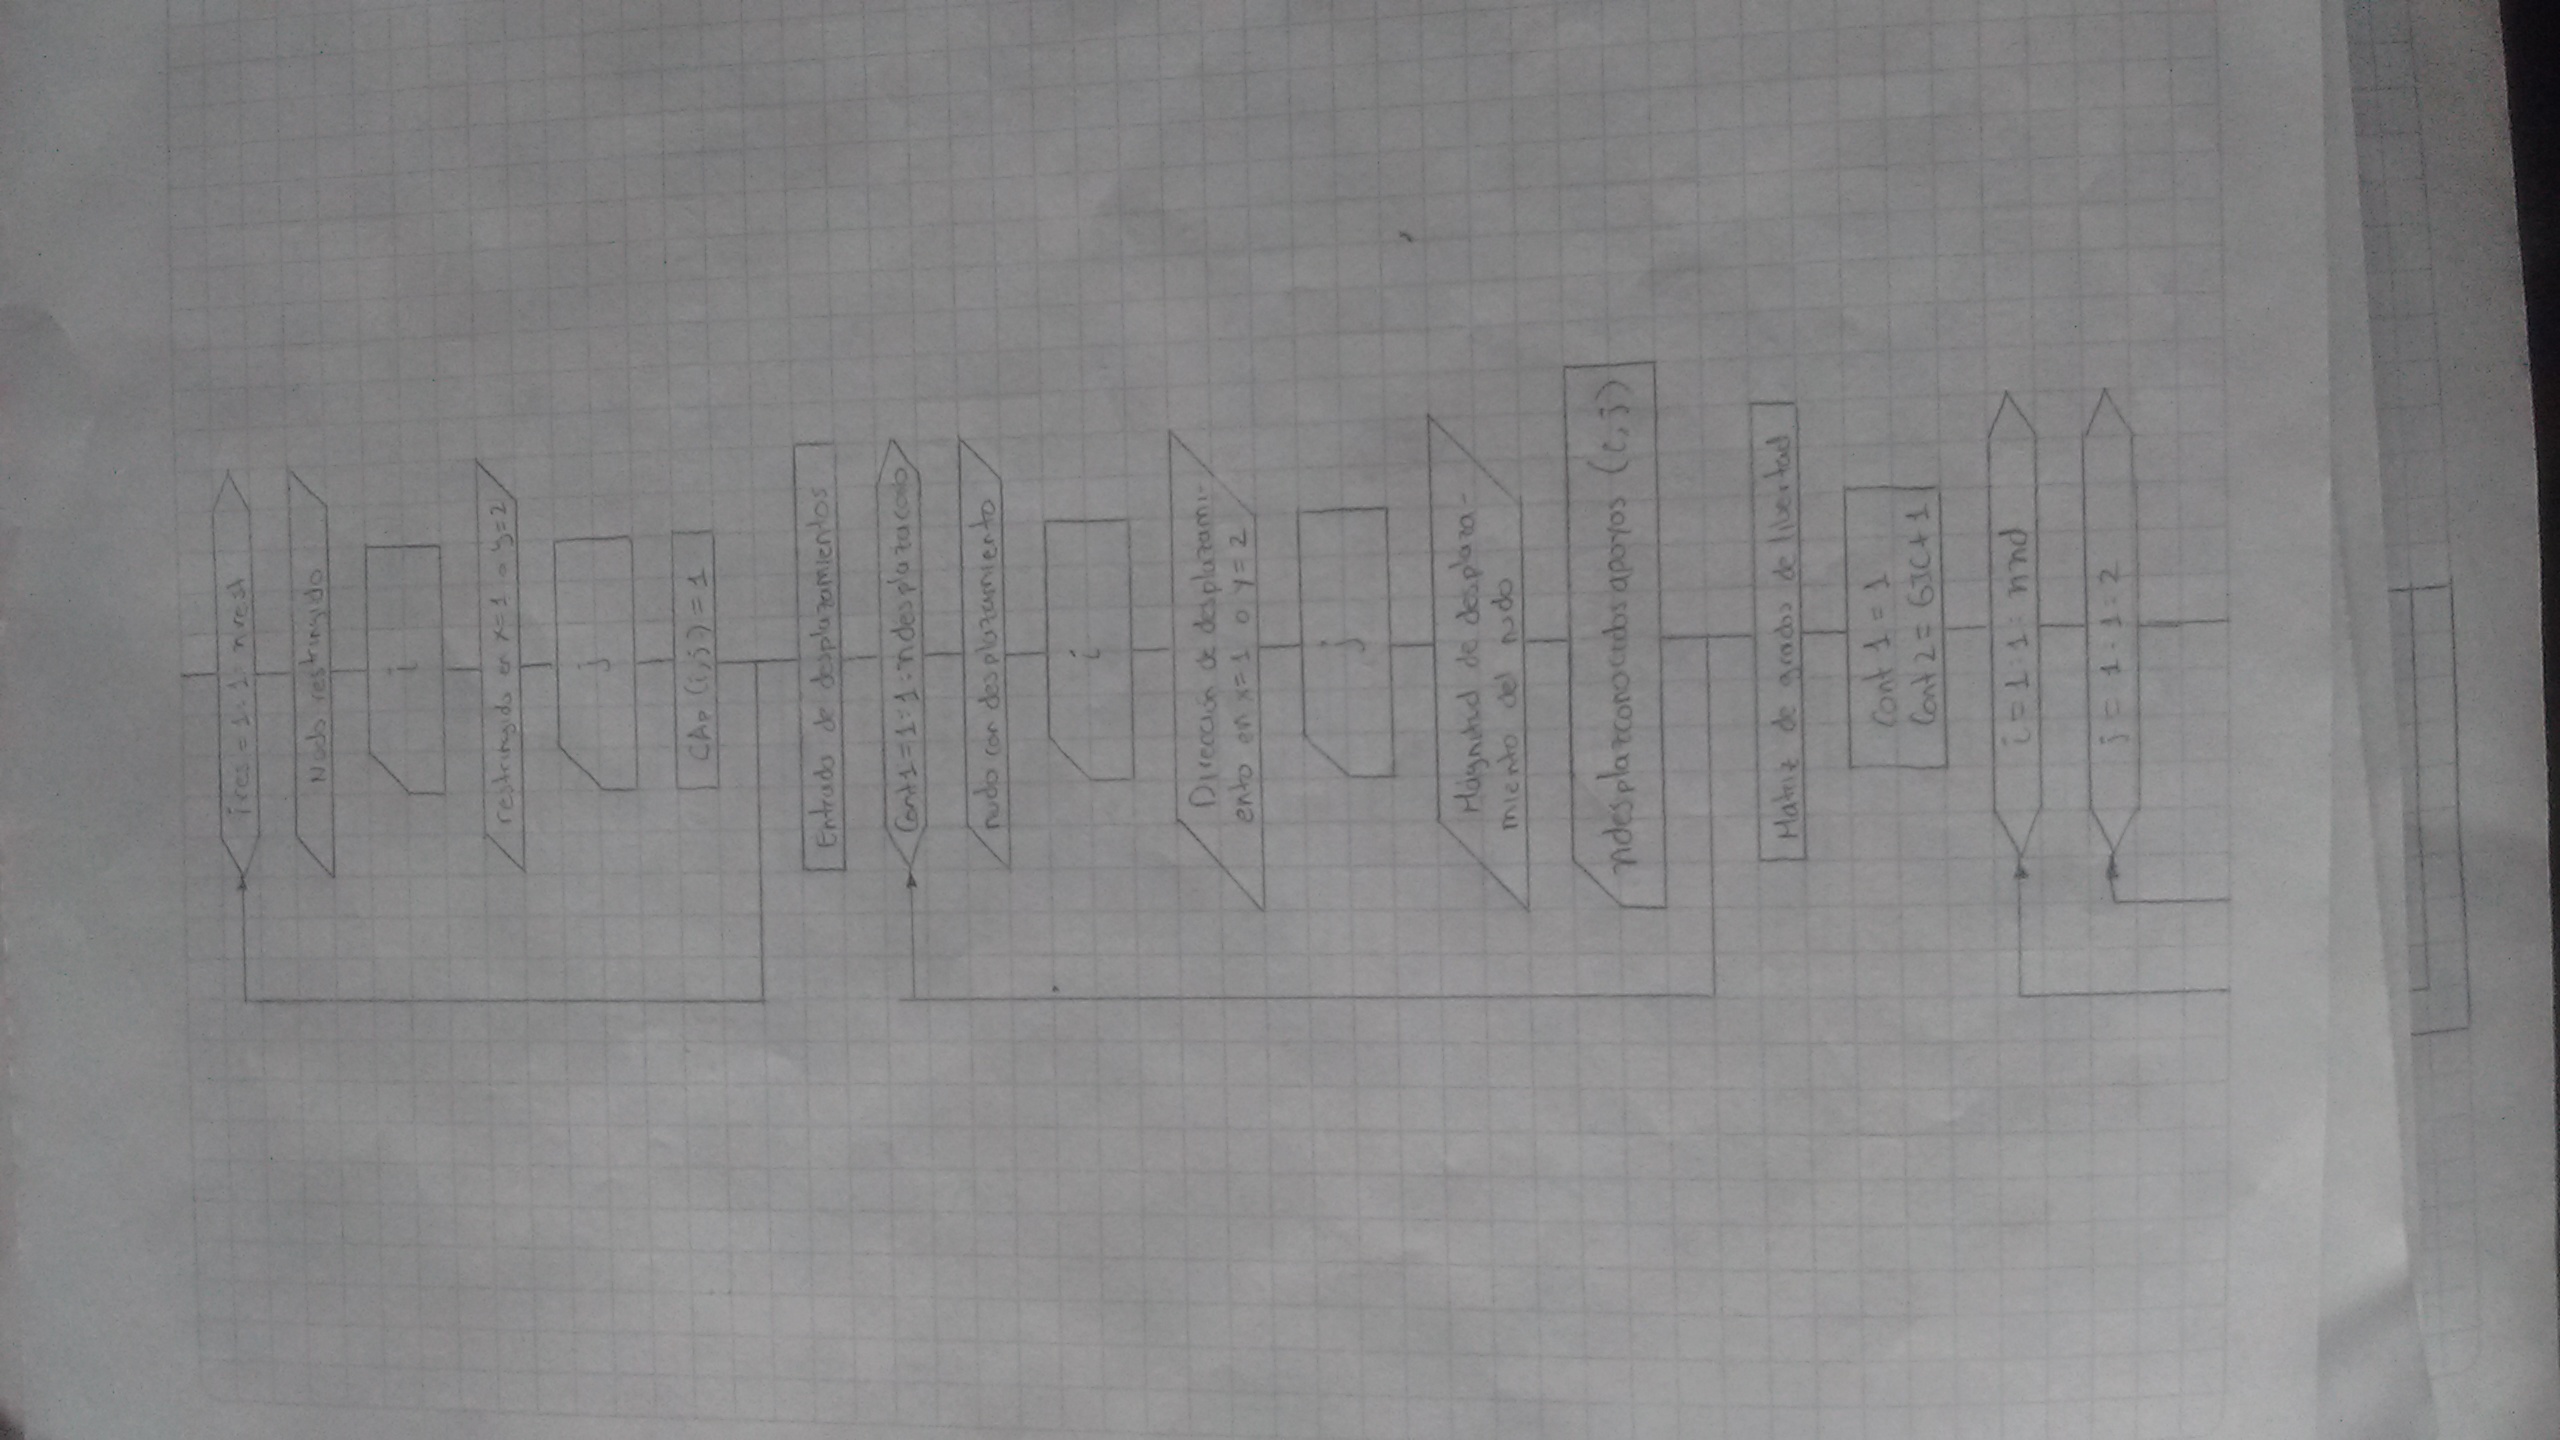 ires = 1:1:nrest
Nodo restringido
i
restringido en x=1 o y=2
j
CAp (i,j) = 1
Entrada de desplazamientos
Cont1=1:1:ndesplazacono
nudo con desplazamiento
i
Dirección de desplazami-
ento en x=1 o y=2
j
Magnitud de desplaza-
miento del nudo
ndesplazconocidosapoyos (i,j)
Matriz de grados de libertad
Cont 1 = 1
Cont 2 = GIC+1
i = 1:1: nnd
j = 1:1:2